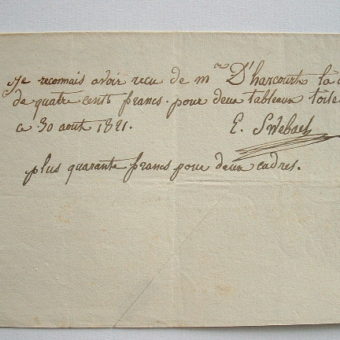 Je reconnais avoir recu de mr D'harcourt la
de quatre cents francs. pour deux tableaux toile
ce 30 aout 1821. E. Swebach
plus quarante francs pour deux cadres.